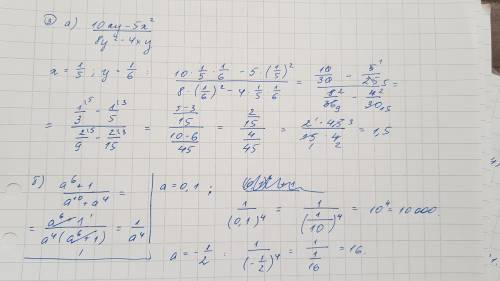 ② а) (10xy - 5x²)/(8y² - 4xy)
x = 1/5 ; y = 1/6 : (10 · 1/5 · 1/6 - 5 · (1/5)²)/(8 · (1/6)² - 4 · 1/5 · 1/6) = (10/30 - 5/25)/(8/36 - 4/30) =
= (1/3 - 1/5)/(2/9 - 2/15) = ((5-3)/15)/((10-6)/45) = (2/15)/(4/45) = (2 · 45)/(15 · 4) = 1,5
б) (a⁶ + 1)/(a¹⁰ + a⁴) =
= (a⁶ + 1)/(a⁴(a⁶ + 1)) = 1/a⁴
a = 0,1 ;
1/(0,1)⁴ = 1/(1/10)⁴ = 10⁴ = 10 000.
a = - 1/2 : 1/(-1/2)⁴ = 1/(1/16) = 16.